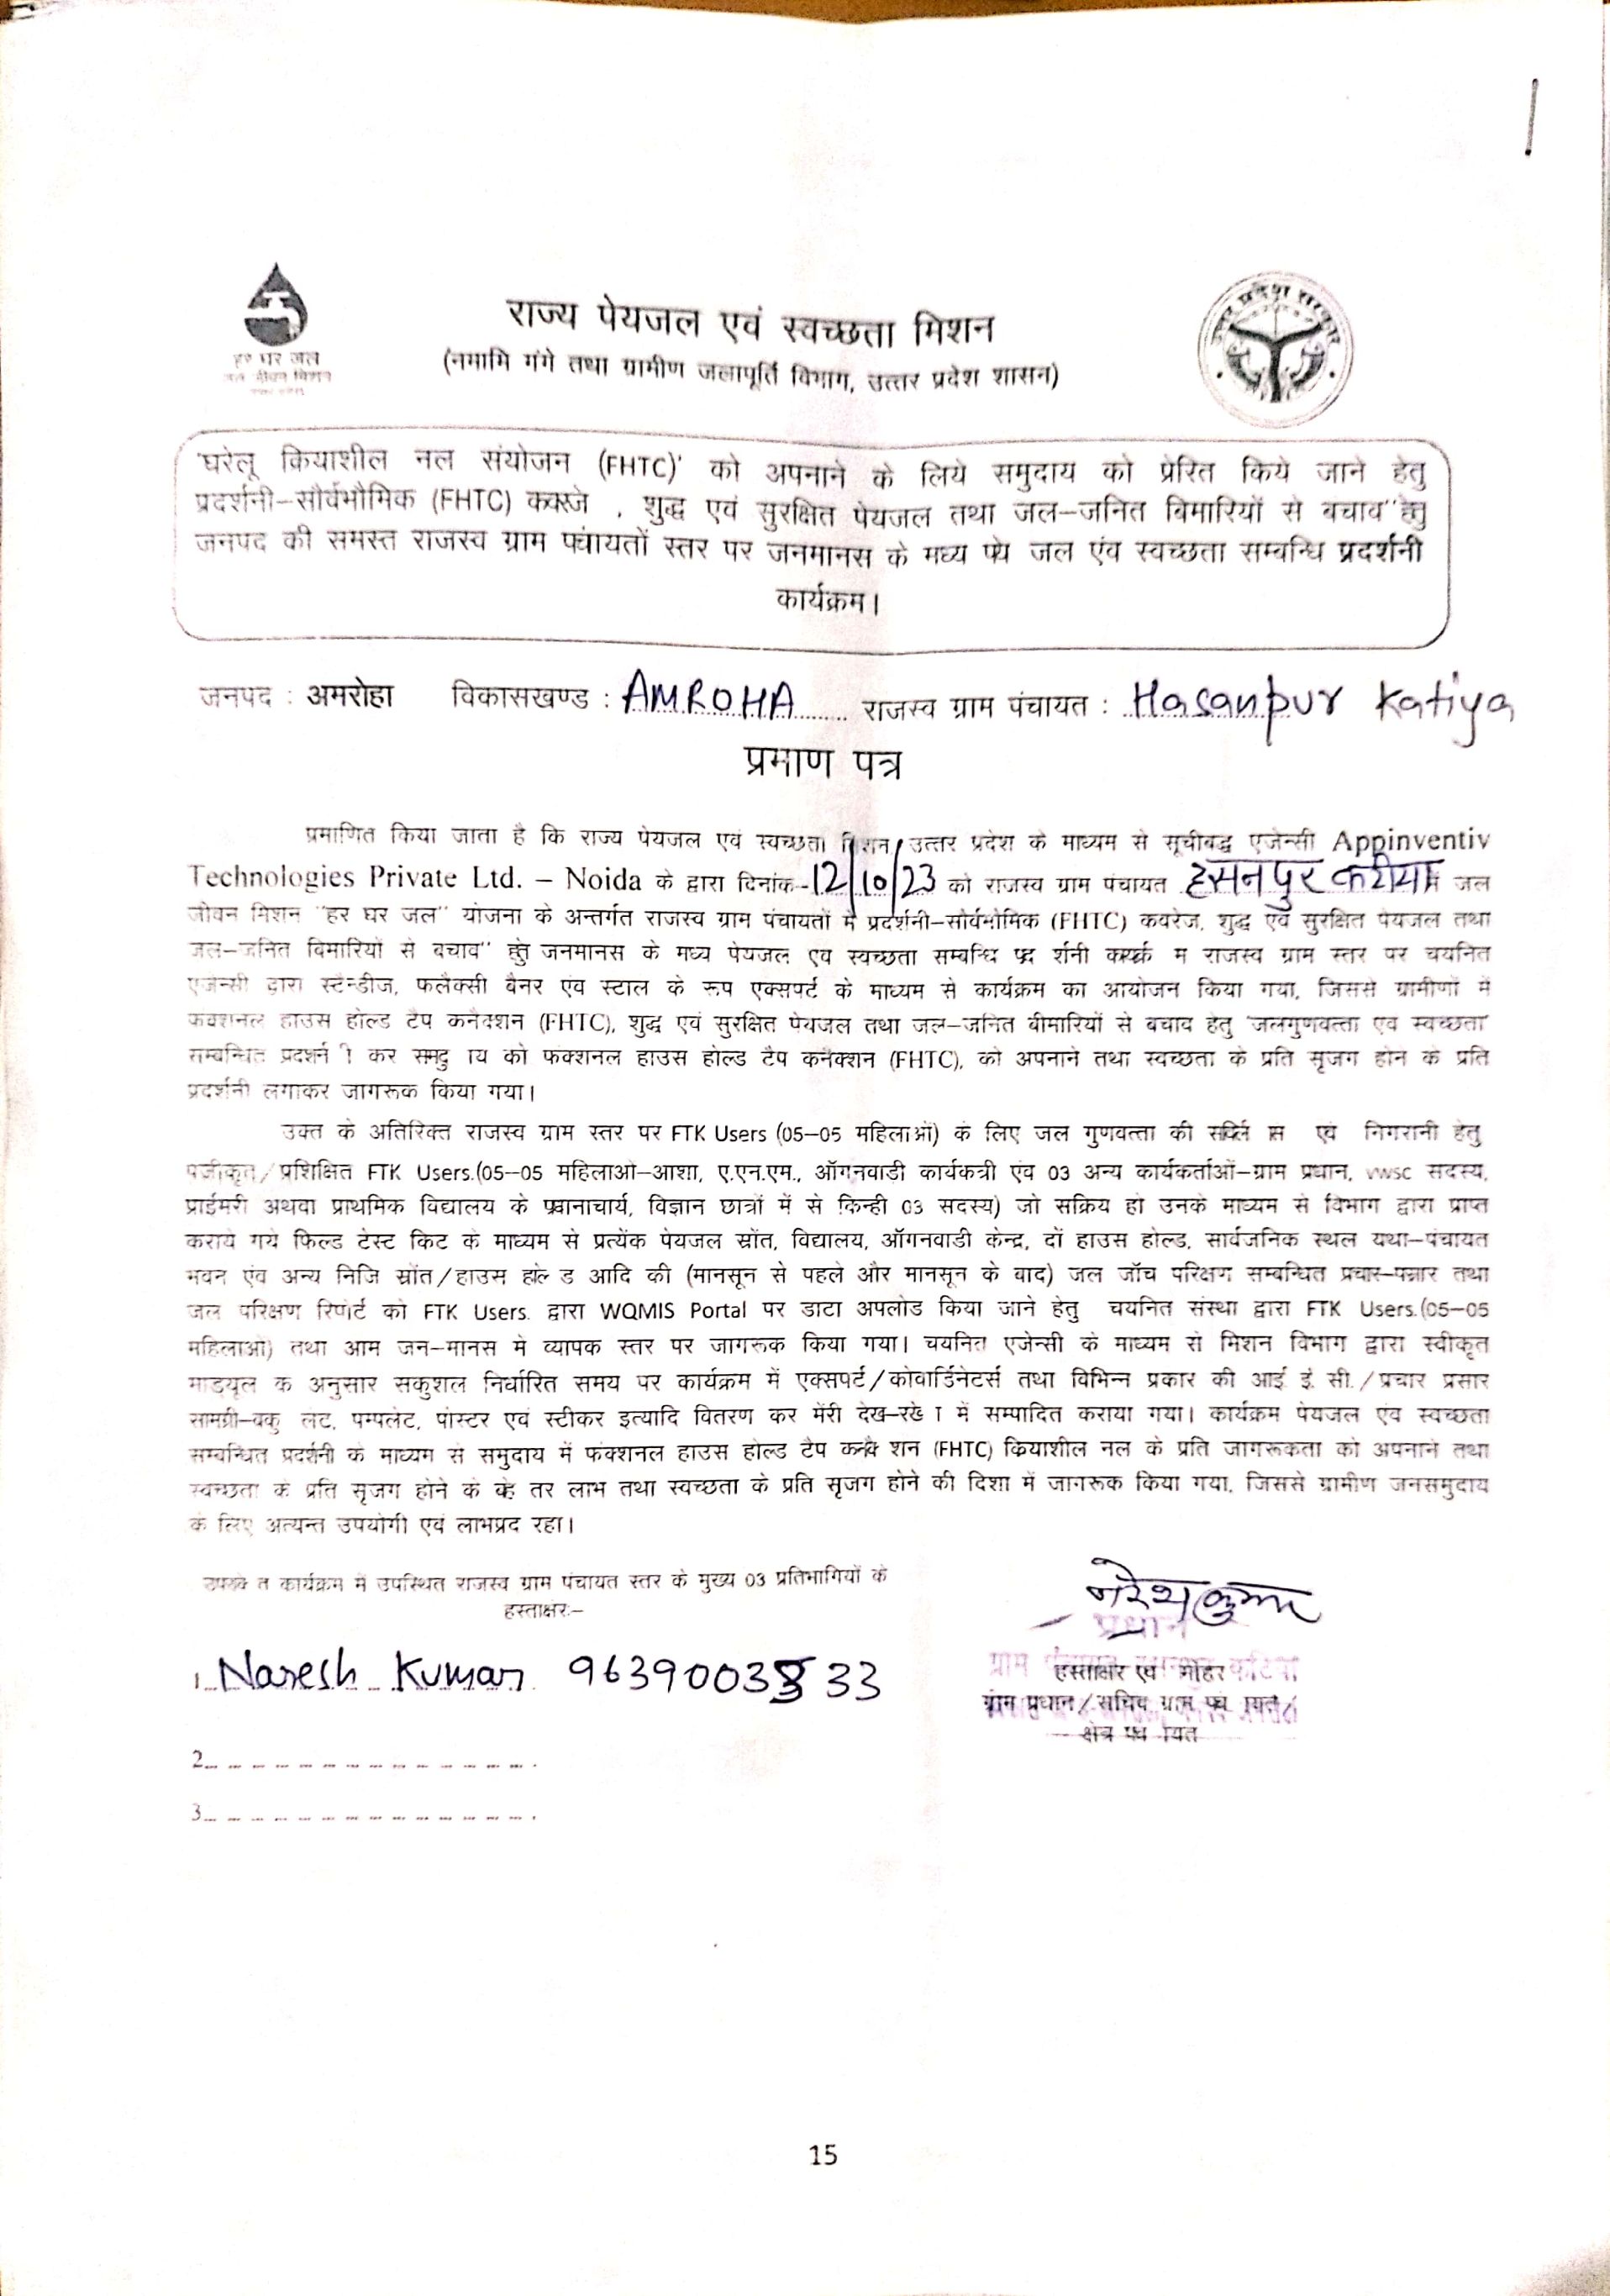 हर घर जल
जल जीवन मिशन
राज्य पेयजल एवं स्वच्छता मिशन
(नमामि गंगे तथा ग्रामीण जलापूर्ति विभाग, उत्तर प्रदेश शासन)
उत्तर प्रदेश सरकार
'घरेलू कियाशील नल संयोजन (FHTC)' को अपनाने के लिये समुदाय को प्रेरित किये जाने हेतु
प्रदर्शनी–सौर्वभौमिक (FHTC) , शुद्ध एवं सुरक्षित पेयजल तथा जल–जनित बिमारियों से बचाव" हेतु
जनपद की समस्त राजस्व ग्राम पंचायतों स्तर पर जनमानस के मध्य जल एंव स्वच्छता सम्बन्धि प्रदर्शनी
कार्यक्रम।
जनपद : अमरोहा विकासखण्ड : AMROHA राजस्व ग्राम पंचायत : Hasanpur Katiya
प्रमाण पत्र
प्रमाणित किया जाता है कि राज्य पेयजल एवं स्वच्छता मिशन उत्तर प्रदेश के माध्यम से सूचीबद्ध एजेन्सी Appinventiv
Technologies Private Ltd. – Noida के द्वारा दिनांक-12/10/23 को राजस्व ग्राम पंचायत हसनपुर जल
जीवन मिशन "हर घर जल" योजना के अन्तर्गत राजस्व ग्राम पंचायतों में प्रदर्शनी–सौर्वभौमिक (FHTC) कवरेज, शुद्ध एवं सुरक्षित पेयजल तथा
जल–जनित बिमारियों से बचाव" हेतु जनमानस के मध्य पेयजल एवं स्वच्छता सम्बन्धि राजस्व ग्राम स्तर पर चयनित
एजेन्सी द्वारा स्टैन्डीज, फलैक्सी बैनर एंव स्टाल के रूप एक्सपर्ट के माध्यम से कार्यक्रम का आयोजन किया गया, जिससे ग्रामीणों में
फंक्शनल हाउस होल्ड टैप कनैक्शन (FHTC), शुद्ध एवं सुरक्षित पेयजल तथा जल–जनित बीमारियों से बचाव हेतु 'जलगुणवत्ता एवं स्वच्छता'
सम्बन्धित कर को फंक्शनल हाउस होल्ड टैप कनैक्शन (FHTC), को अपनाने तथा स्वच्छता के प्रति सृजग होने के प्रति
प्रदर्शनी लगाकर जागरूक किया गया।
उक्त के अतिरिक्त राजस्व ग्राम स्तर पर FTK Users (05–05 महिलाओं) के लिए जल गुणवत्ता की एवं निगरानी हेतु
पंजीकृत/प्रशिक्षित FTK Users.(05–05 महिलाओ–आशा, ए.एन.एम., ऑगनवाडी कार्यकत्री एंव 03 अन्य कार्यकर्ताओं–ग्राम प्रधान, vwsc सदस्य,
प्राईमरी अथवा प्राथमिक विद्यालय के विज्ञान छात्रों में से किन्ही 03 सदस्य) जो सक्रिय हो उनके माध्यम से विभाग द्वारा प्राप्त
कराये गये फिल्ड टेस्ट किट के माध्यम से प्रत्येंक पेयजल स्रोंत, विद्यालय, ऑगनवाडी केन्द्र, दों हाउस होल्ड, सार्वजनिक स्थल यथा–पंचायत
भवन एंव अन्य निजि स्रोंत/हाउस आदि की (मानसून से पहले और मानसून के वाद) जल जॉच परिक्षण सम्बन्धित तथा
जल परिक्षण रिपोर्ट को FTK Users. द्वारा WQMIS Portal पर डाटा अपलोड किया जाने हेतु चयनित संस्था द्वारा FTK Users.(05–05
महिलाओं) तथा आम जन–मानस मे व्यापक स्तर पर जागरूक किया गया। चयनित एजेन्सी के माध्यम से मिशन विभाग द्वारा स्वीकृत
माड्यूल के अनुसार सकुशल निर्धारित समय पर कार्यक्रम में एक्सपर्ट/कोवार्डिनेटर्स तथा विभिन्न प्रकार की आई. ई. सी./प्रचार प्रसार
सामग्री– पम्पलेट, पोस्टर एवं स्टीकर इत्यादि वितरण कर मेंरी में सम्पादित कराया गया। कार्यक्रम पेयजल एंव स्वच्छता
सम्बन्धित प्रदर्शनी के माध्यम से समुदाय में फंक्शनल हाउस होल्ड टैप (FHTC) कियाशील नल के प्रति जागरूकता को अपनाने तथा
स्वच्छता के प्रति सृजग होने के लाभ तथा स्वच्छता के प्रति सृजग होने की दिशा में जागरूक किया गया, जिससे ग्रामीण जनसमुदाय
के लिए अत्यन्त उपयोगी एवं लाभप्रद रहा।
कार्यक्रम में उपस्थित राजस्व ग्राम पंचायत स्तर के मुख्य 03 प्रतिभागियों के
हस्ताक्षर:–
नरेश कुमार
प्रधान
1. Naresh Kumar
हस्ताक्षर एवं मोहर
ग्राम प्रधान/सचिव ग्राम
क्षेत्र
2
3
15